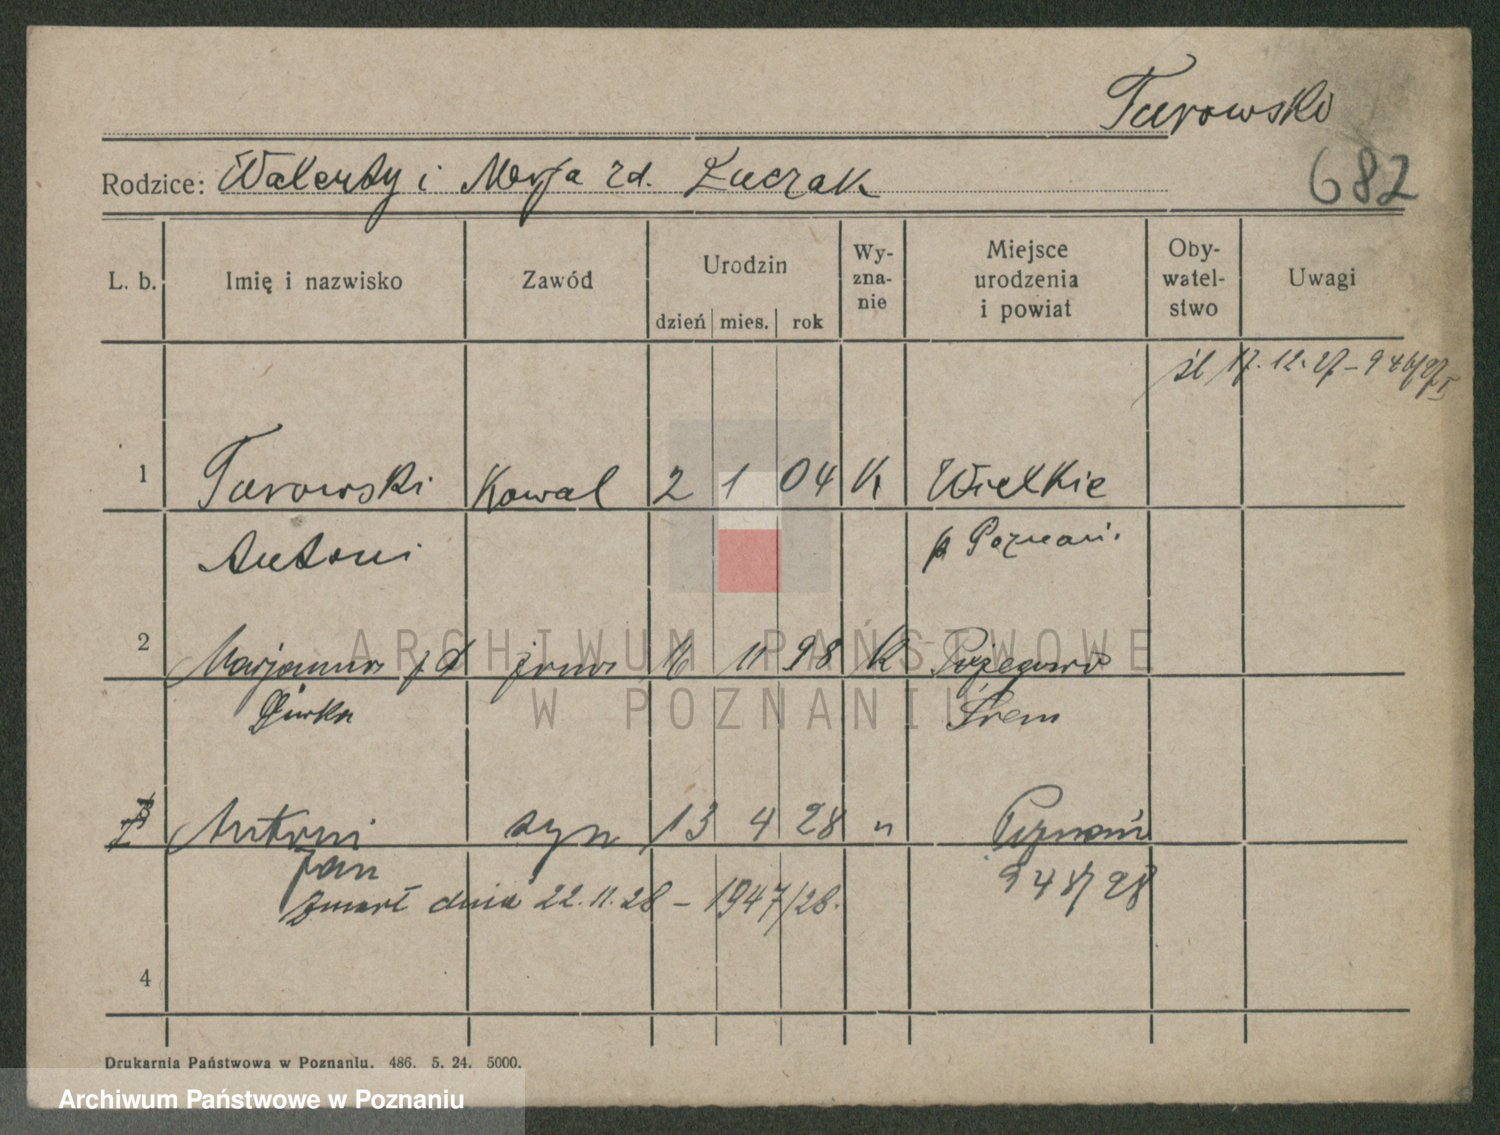 Turowski
Rodzice: Walenty i Marja zd. Łuczak
682
L. b.
Imię i nazwisko
Zawód
Urodzin
dzień mies. rok
Wy-
zna-
nie
Miejsce
urodzenia
i powiat
Oby-
watel-
stwo
Uwagi
śl 17.12.27 – 946/27 I
1 Turowski Kowal 2 1 04 K Wielkie
Antoni p Poznań.
2 Marjanna żona 11 98 K
Śrem
3 Antoni syn 13 4 28 " Poznań
Jan 948/28
zmarł dnia 22.11.28 – 1947/28.
4
ARCHIWUM PAŃSTWOWE
W POZNANIU
Drukarnia Państwowa w Poznaniu. 486. 5. 24. 5000.
Archiwum Państwowe w Poznaniu